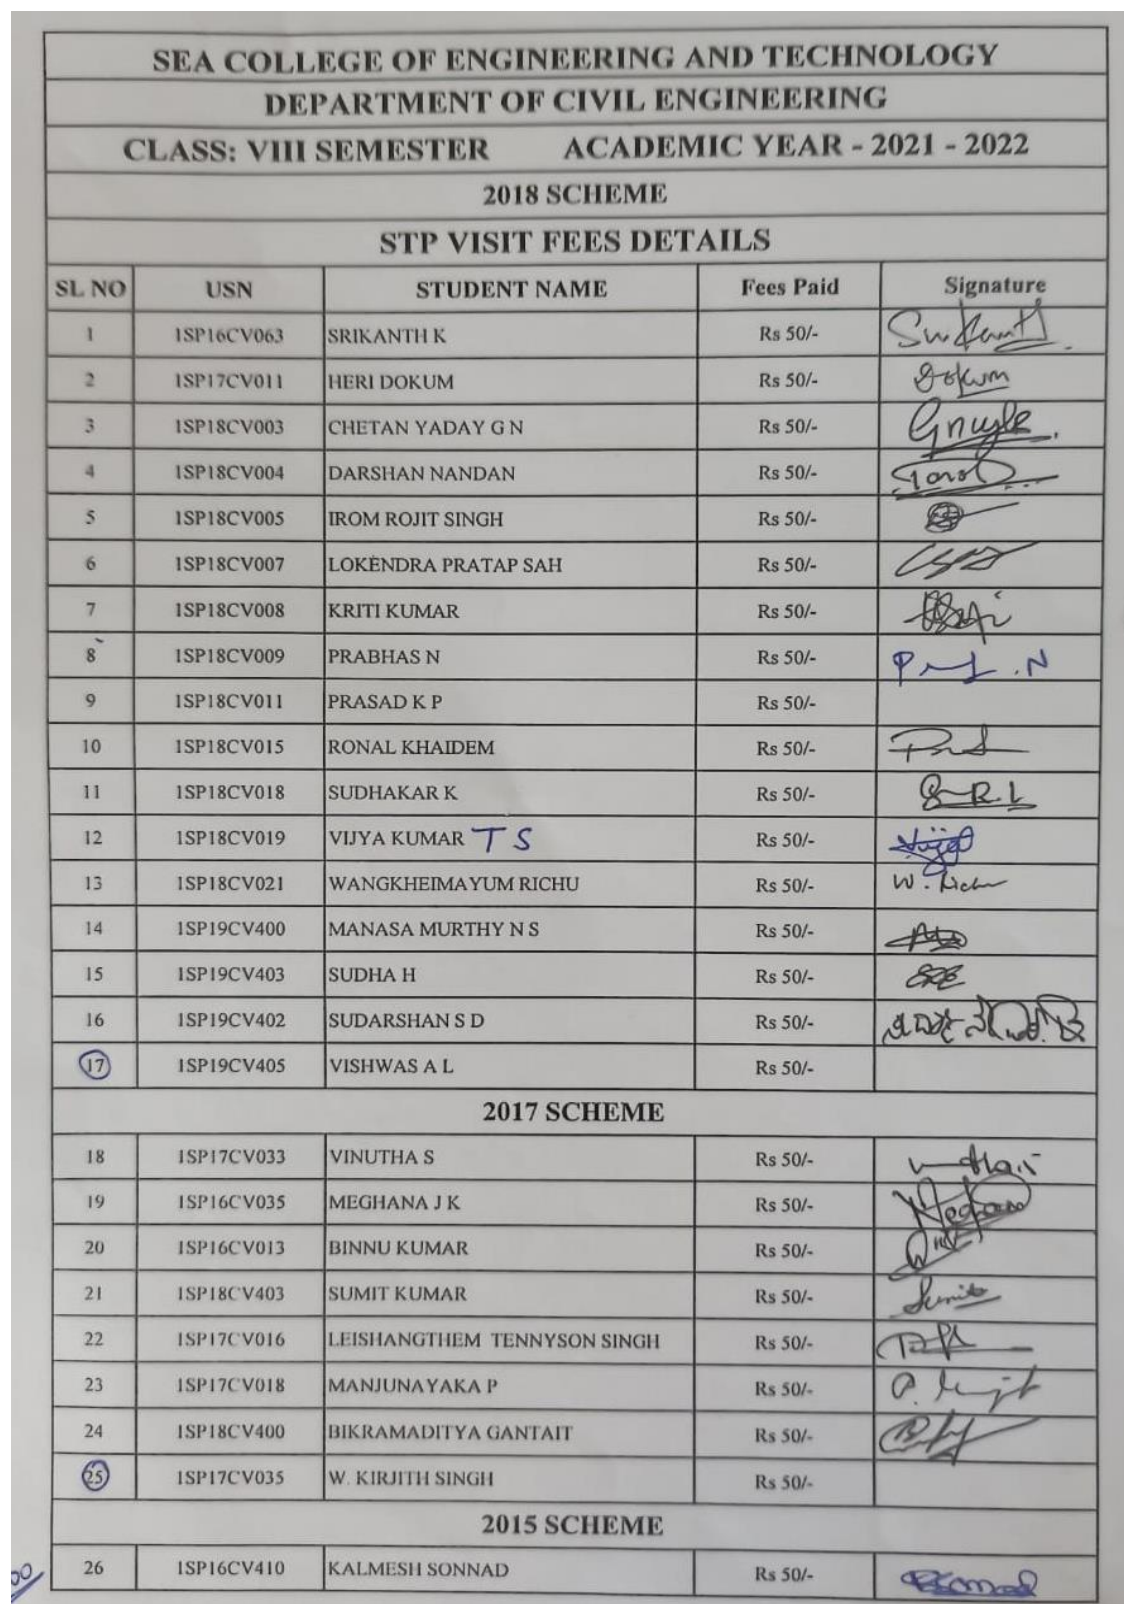 SEA COLLEGE OF ENGINEERING AND TECHNOLOGY
DEPARTMENT OF CIVIL ENGINEERING
CLASS: VIII SEMESTER ACADEMIC YEAR - 2021 - 2022
2018 SCHEME
STP VISIT FEES DETAILS
SL NO USN STUDENT NAME Fees Paid Signature
1 1SP16CV063 SRIKANTH K Rs 50/- Srikanth
2 1SP17CV011 HERI DOKUM Rs 50/- Dokum
3 1SP18CV003 CHETAN YADAY G N Rs 50/-
4 1SP18CV004 DARSHAN NANDAN Rs 50/-
5 1SP18CV005 IROM ROJIT SINGH Rs 50/-
6 1SP18CV007 LOKENDRA PRATAP SAH Rs 50/-
7 1SP18CV008 KRITI KUMAR Rs 50/-
8 1SP18CV009 PRABHAS N Rs 50/-
9 1SP18CV011 PRASAD K P Rs 50/-
10 1SP18CV015 RONAL KHAIDEM Rs 50/-
11 1SP18CV018 SUDHAKAR K Rs 50/-
12 1SP18CV019 VIJYA KUMAR T S Rs 50/-
13 1SP18CV021 WANGKHEIMAYUM RICHU Rs 50/- W. Richu
14 1SP19CV400 MANASA MURTHY N S Rs 50/-
15 1SP19CV403 SUDHA H Rs 50/-
16 1SP19CV402 SUDARSHAN S D Rs 50/-
17 1SP19CV405 VISHWAS A L Rs 50/-
2017 SCHEME
18 1SP17CV033 VINUTHA S Rs 50/-
19 1SP16CV035 MEGHANA J K Rs 50/-
20 1SP16CV013 BINNU KUMAR Rs 50/-
21 1SP18CV403 SUMIT KUMAR Rs 50/- Sumit
22 1SP17CV016 LEISHANGTHEM TENNYSON SINGH Rs 50/-
23 1SP17CV018 MANJUNAYAKA P Rs 50/-
24 1SP18CV400 BIKRAMADITYA GANTAIT Rs 50/-
25 1SP17CV035 W. KIRJITH SINGH Rs 50/-
2015 SCHEME
26 1SP16CV410 KALMESH SONNAD Rs 50/-